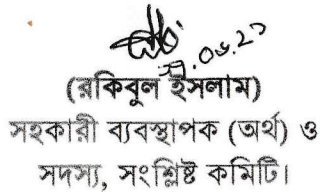 (রকিবুল ইসলাম)
সহকারী ব্যবস্থাপক (অর্থ) ও
সদস্য, সংশ্লিষ্ট কমিটি।